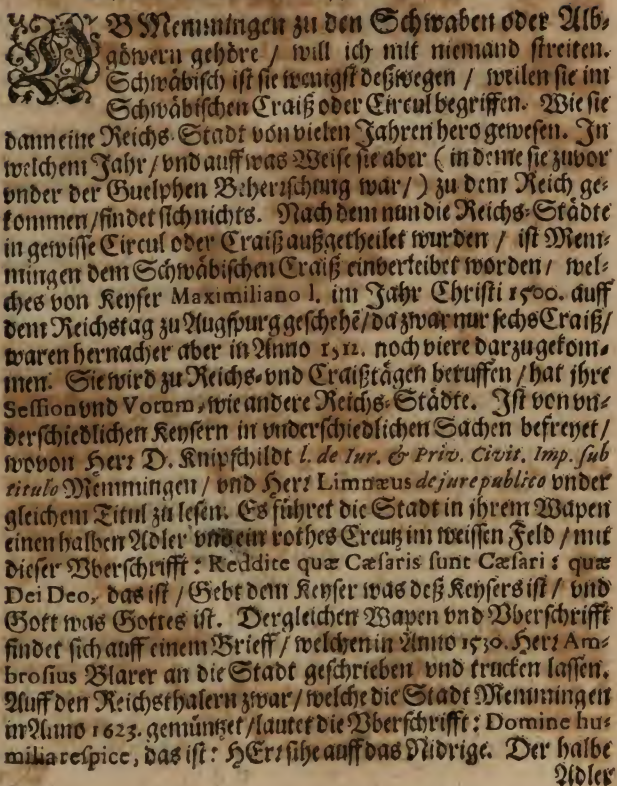 OB Memmingen zu den Schwaben oder Alb-
göwern gehöre / will ich mit niemand streiten.
Schwäbisch ist sie wenigst deßwegen / weilen sie im
Schwäbischen Craiß oder Circul begriffen. Wie sie
dann eine Reichs-Stadt von vielen Jahren hero gewesen. In
welchem Jahr / vnd auff was Weise sie aber (in deme sie zuvor
vnder der Guelphen Beherrschung war /) zu dem Reich ge-
kommen / findet sich nichts. Nach dem nun die Reichs-Städte
in gewisse Circul oder Craiß außgetheilet wurden / ist Mem-
mingen dem Schwäbischen Craiß einverleibet worden / wel-
ches von Keyser Maximiliano I. im Jahr Christi 1500. auff
dem Reichstag zu Augspurg geschehē / da zwar nur sechs Craiß /
waren hernacher aber in Anno 1512. noch viere darzu gekom-
men. Sie wird zu Reichs- vnd Craißtägen beruffen / hat ihre
Session vnd Votum, wie andere Reichs-Städte. Ist von vn-
derschiedlichen Keysern in vnderschiedlichen Sachen befreyet /
wovon Herr D. Knipschildt l. de Iur. & Priv. Civit. Imp. sub
titulo Memmingen / vnd Herr Limnæus de jure publico vnder
gleichem Titul zu lesen. Es führet die Stadt in ihrem Wapen
einen halben Adler vnd ein rothes Creutz im weissen Feld / mit
dieser Vberschrifft: Reddite quæ Cæsaris sunt Cæsari: quæ
Dei Deo, das ist / Gebt dem Keyser was deß Keysers ist / vnd
Gott was Gottes ist. Dergleichen Wapen vnd Vberschrifft
findet sich auff einem Brieff / welchen in Anno 1530. Herr Am-
brosius Blarer an die Stadt geschrieben vnd trucken lassen.
Auff den Reichsthalern zwar / welche die Stadt Memmingen
in Anno 1623. gemüntzet / lautet die Vberschrifft: Domine hu-
milia respice, das ist: HErr sihe auff das Nidrige. Der halbe
Adler